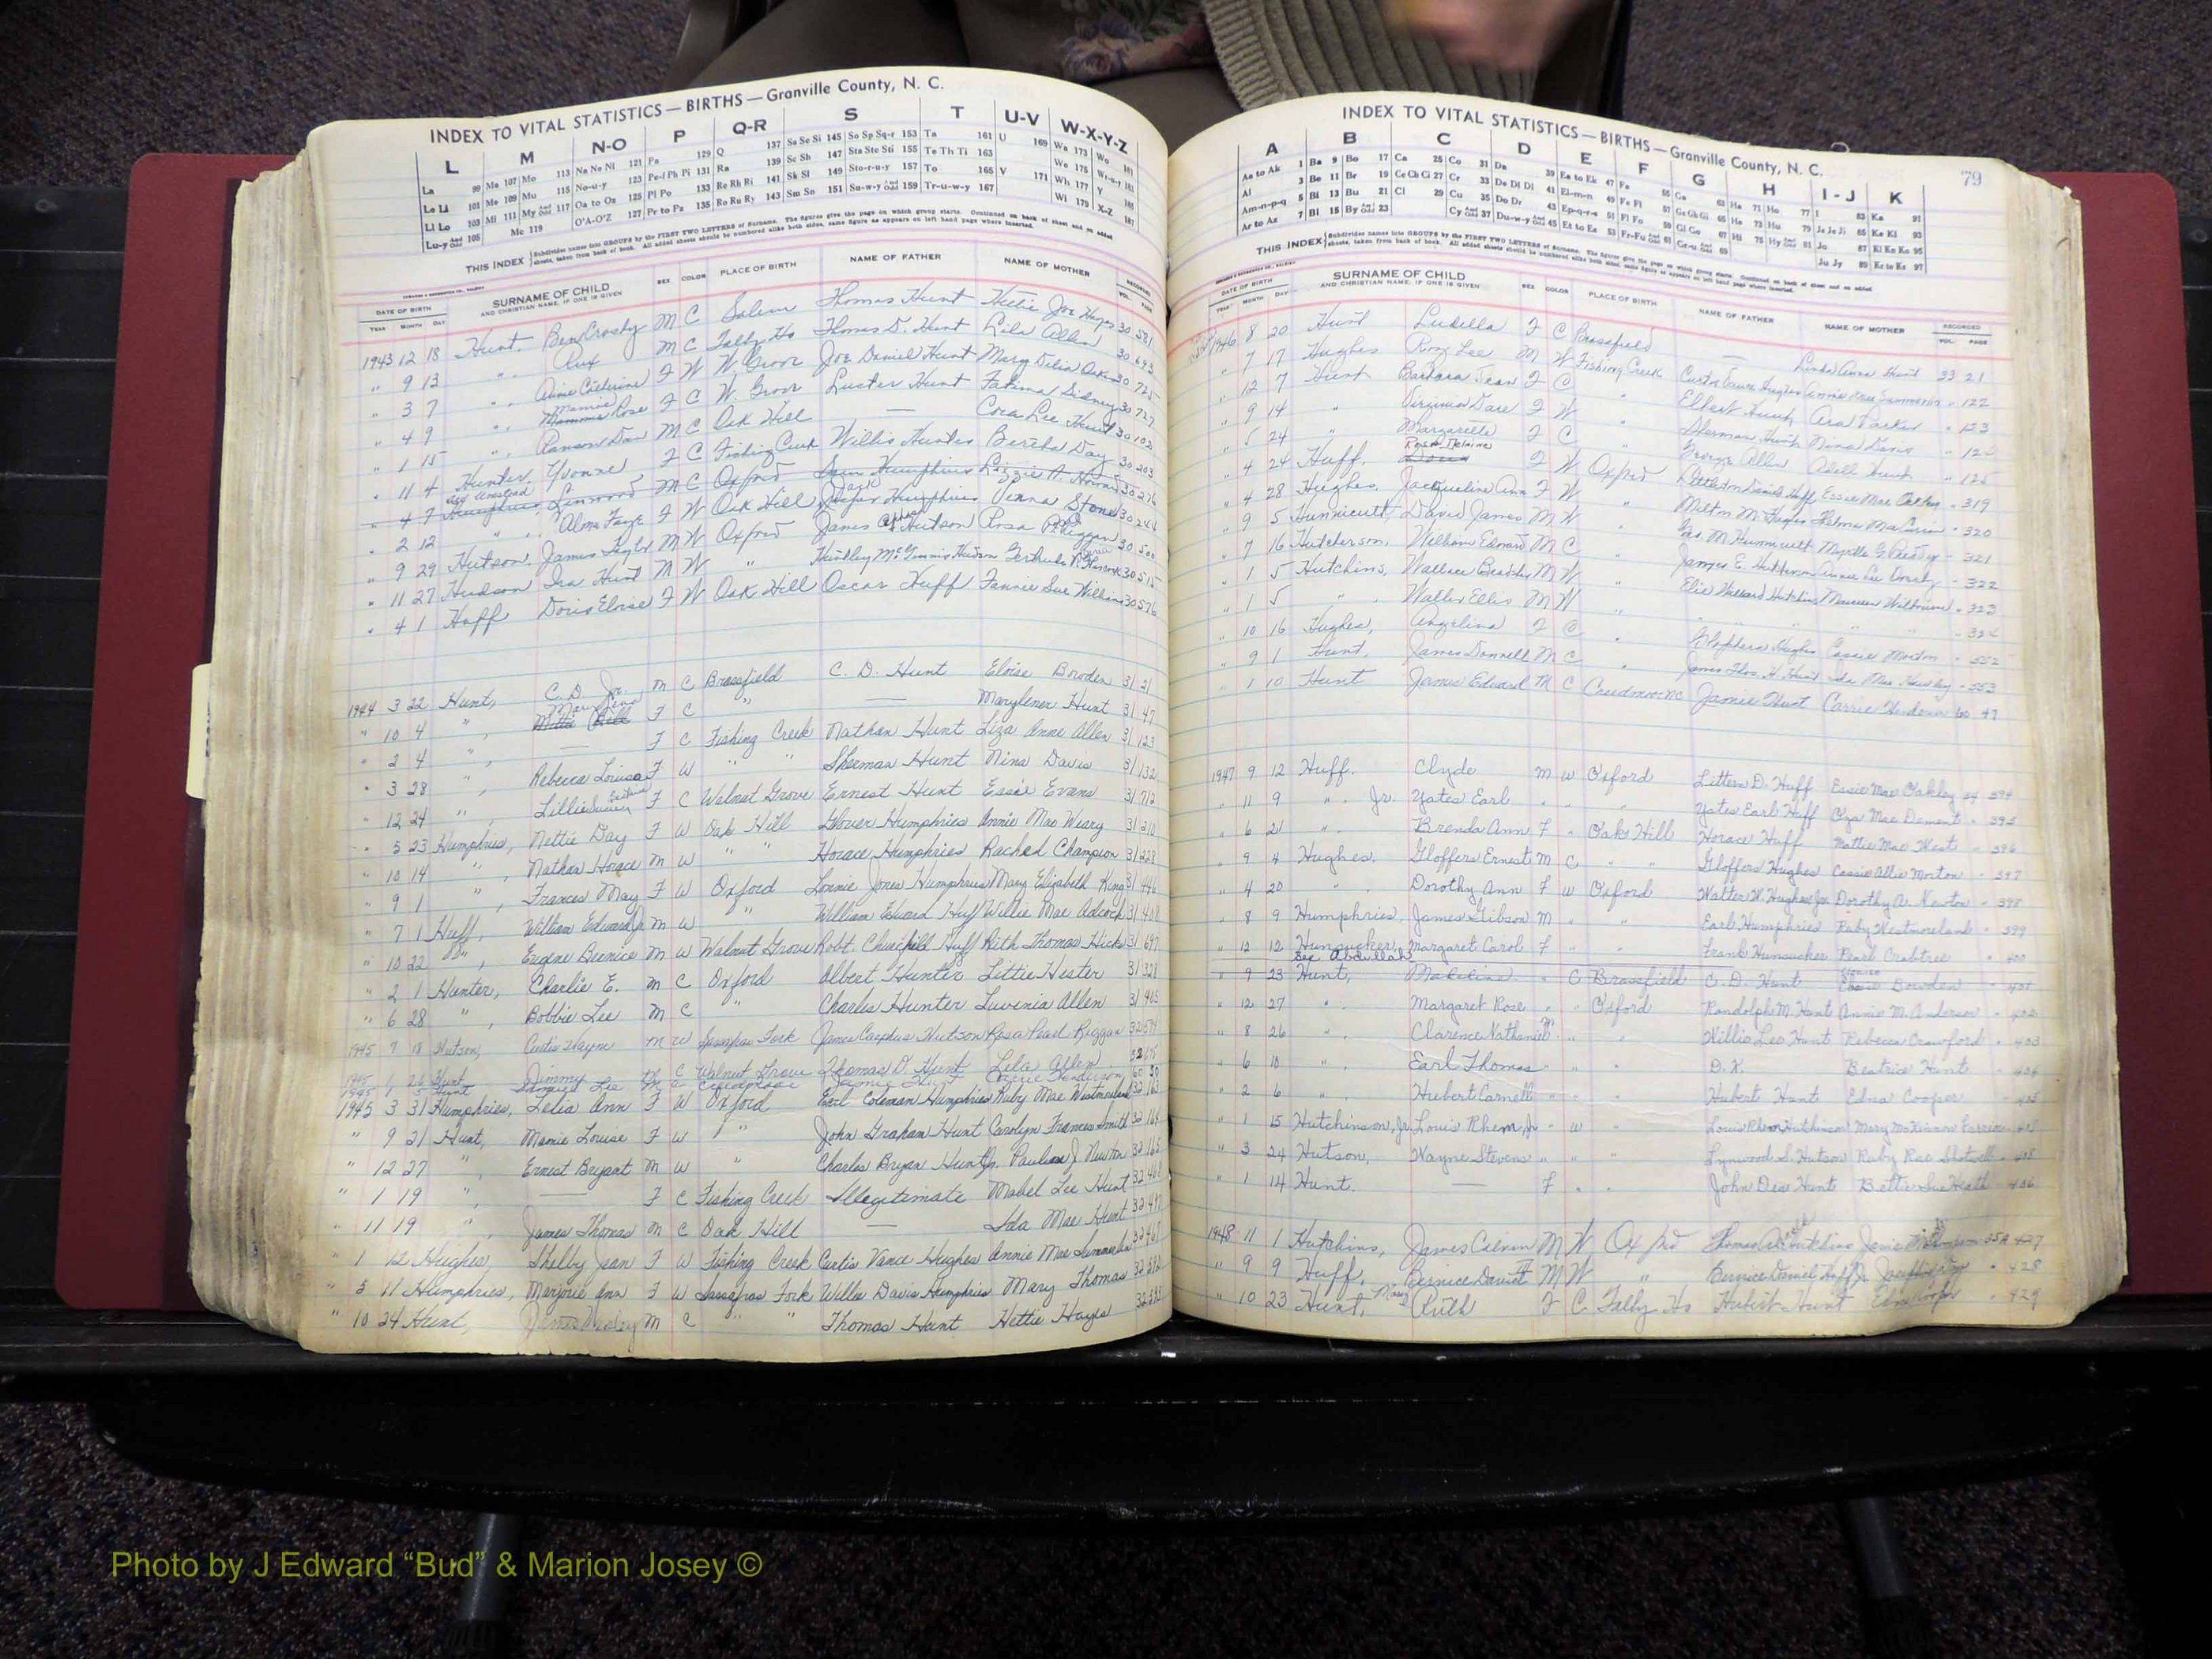 INDEX TO VITAL STATISTICS — BIRTHS — Granville County, N. C.
L M N-O P Q-R S T U-V W-X-Y-Z
La 99 Ma 107 Mo 113 Na Ne Ni 121 Pa 129 Q 137 Sa Se Si 145 So Sp Sq-r 153 Ta 161 U 169 Wa 173 Wo 181
Le Li 101 Me 109 Mu 115 No-u-y 123 Pe-f Ph Pi 131 Ra 139 Sc Sh 147 Sta Ste Sti 155 Te Th Ti 163 We 175 Wr-u-y 183
Ll Lo 103 Mi 111 My And Odd 117 Oa to Oz 125 Pl Po 133 Re Rh Ri 141 Sk Sl 149 Sto-r-u-y 157 To 165 V 171 Wh 177 Y 185
Lu-y And Odd 105 Mc 119 O'A-O'Z 127 Pr to Pz 135 Ro Ru Ry 143 Sm Sn 151 Su-w-y And Odd 159 Tr-u-w-y 167 Wi 179 X-Z 187
THIS INDEX Subdivides names into GROUPS by the FIRST TWO LETTERS of Surname. The figures give the page on which group starts. Continued on back of sheet and on added
sheets, taken from back of book. All added sheets should be numbered alike both sides, same figure as appears on left hand page where inserted.
DATE OF BIRTH SURNAME OF CHILD SEX COLOR PLACE OF BIRTH NAME OF FATHER NAME OF MOTHER RECORDED
YEAR MONTH DAY AND CHRISTIAN NAME, IF ONE IS GIVEN VOL. PAGE
1943 12 18 Hunt. Ben Crosby M C Salem Thomas Hunt Hettie Joe Hayes 30 581
" 9 13 " . Rux M C Tally Ho Thomas D. Hunt Lila Allen 30 695
" 3 7 " . Catherine F W W. Grove Joe Daniel Hunt Mary Delia 30 725
" 4 9 " . Mamie Rose F C W. Grove Luster Hunt Fatima Sidney 30 727
" 1 15 " . M C Oak Hill — Cora Lee Hunt 30 102
" 11 4 Hunter, Yvonne F C Fishing Creek Willis Hunter Bertha Day 30 203
" 4 7 Humphries, Linwood M C Oxford Humphries Lizzie A. 30 276
" 2 12 " . Alma Faye F W Oak Hill Humphries Vienna Stone 30 244
" 9 29 Hutson, James Taylor M W Oxford James Hutson Rosa P. Riggan 30 500
" 11 27 Hudson Ira Hunt M W " Huntley McGinnis Hudson Gertrude Hancock 30 515
" 4 1 Huff Doris Eloise F W Oak Hill Oscar Huff Fannie Sue Williams 30 576
1944 3 22 Hunt, C. D. Jr. M C Brassfield C. D. Hunt Eloise Bowden 31 21
" 10 4 " , Mary Lena F C " — Marylener Hunt 31 47
" 2 4 " , — F C Fishing Creek Nathan Hunt Liza Anne Allen 31 123
" 3 28 " , Rebecca Louise F W " " Sherman Hunt Nina Davis 31 132
" 12 24 " , Lillie F C Walnut Grove Ernest Hunt Essie Evans 31 712
" 5 23 Humphries, Nettie Day F W Oak Hill Glover Humphries Annie Mae Weary 31 210
" 10 14 " , Nathan Horace M W " " Horace Humphries Rachel Champion 31 228
" 9 1 " , Frances May F W Oxford Lonnie Jones Humphries Mary Elizabeth King 31 446
" 7 1 Huff, William Edward Jr. M W " William Edward Huff Willie Mae Adcock 31 408
" 10 22 " , Eugene Bernice M W Walnut Grove Robt. Churchill Huff Ruth Thomas Hicks 31 697
" 2 1 Hunter, Charlie E. M C Oxford Albert Hunter Littie Hester 31 328
" 6 28 " , Bobbie Lee M C " Charlie Hunter Luvinia Allen 31 403
1945 9 18 Hutson, Curtis Wayne M W Sassafras Fork James Hutson Rosa Pearl Riggan 32 574
1945 1 Hunt Jimmy M C Walnut Grove Thomas D. Hunt Lila Allen 32
1945 Hunt Samuel Lee M C Creedmoor Jamie Hunt Carrie Henderson 60 50
1945 3 31 Humphries, Lelia Ann F W Oxford Earl Coleman Humphries Ruby Mae Westmoreland 32 163
" 9 21 Hunt, Mamie Louise F W " John Graham Hunt Carolyn Frances Smith 32 164
" 12 27 " , Ernest Bryant M W " Charles Bryan Hunt Jr. Pauline J Newton 32 165
" 1 19 " , — F C Fishing Creek Illegitimate Mabel Lee Hunt 32
" 11 19 " , James Thomas M C Oak Hill — Ida Mae Hunt 32
" 1 12 Hughes, Shelby Jean F W Fishing Creek Curtis Vance Hughes Annie Mae Summerlin 32
" 5 11 Humphries, Marjorie Ann F W Sassafras Fork Willie Davis Humphries Mary Thomas 32
" 10 24 Hunt, James M C " " Thomas Hunt Hettie Hayes 32
INDEX TO VITAL STATISTICS — BIRTHS — Granville County, N. C.
79
A B C D E F G H I-J K
Aa to Ak 1 Ba 9 Bo 17 Ca 25 Co 31 Da 39 Ea to Ek 47 Fa 55 Ga 63 Ha 71 Ho 77 I 83 Ka 91
Al 3 Be 11 Br 19 Ce Ch Ci 27 Cr 33 De Di Dl 41 El-m-n 49 Fe Fi 57 Ge Gh Gi 65 He 73 Hu 79 Ja Je Ji 85 Ke Ki 93
Am-n-p-q 5 Bi 13 Bu 21 Cl 29 Cu 35 Do Dr 43 Ep-q-r-s 51 Fl Fo 59 Gl Go 67 Hi 75 Hy And Odd 81 Jo 87 Kl Kn Ko 95
Ar to Az 7 Bl 15 By And Odd 23 Cy And Odd 37 Du-w-y And Odd 45 Et to Ez 53 Fr-Fu And Odd 61 Gr-u And Odd 69 Ju Jy 89 Kr to Kz 97
THIS INDEX Subdivides names into GROUPS by the FIRST TWO LETTERS of Surname. The figures give the page on which group starts. Continued on back of sheet and on added
sheets, taken from back of book. All added sheets should be numbered alike both sides, same figure as appears on left hand page where inserted.
DATE OF BIRTH SURNAME OF CHILD SEX COLOR PLACE OF BIRTH NAME OF FATHER NAME OF MOTHER RECORDED
YEAR MONTH DAY AND CHRISTIAN NAME, IF ONE IS GIVEN VOL. PAGE
1946 8 20 Hunt Ludella F C Brassfield — Linda Anna Hunt 33 21
" 7 17 Hughes Roy Lee M W Fishing Creek Curtis Vance Hughes Annie Mae Summerlin " 122
" 12 7 Hunt Barbara Jean F C " Elbert Hunt Ara Parker " 123
" 9 14 " Virginia Dare F W " Sherman Hunt Nina Davis " 124
" 5 24 " Margarette F C " George Allen Adell Hunt " 125
" 4 24 Huff. Rosa Delaine F W Oxford Littleton Daniel Huff Essie Mae Oakley " 319
" 4 28 Hughes, Jacqueline Ann F W " Milton M. Hughes Thelma Mae Currin " 320
" 9 5 Hunnicutt, David James M W " Geo. M. Hunnicutt Myrtle G. " 321
" 7 16 Hutcherson, William Edward M C " James E. Hutcherson Annie Lee " 322
" 1 5 Hutchins, Wallace Beasley M W " Elie Willard Hutchins Maureen Wilbourne " 323
" 1 5 " . Walter Ellis M W " " " " 324
" 10 16 Hughes, Angelina F C " Gloffers Hughes Cassie Morton " 552
" 9 1 Hunt, James Donnell M C " James Thos. H. Hunt Ida Mae " 553
" 1 10 Hunt James Edward M C Creedmoor NC Jamie Hunt Carrie Henderson 60 47
1947 9 12 Huff. Clyde M W Oxford Littern D. Huff Essie Mae Oakley 34 394
" 11 9 " . Jr. Yates Earl " " " Yates Earl Huff Oza Mae Dement " 395
" 6 21 " . Brenda Ann F " Oak Hill Horace Huff Mattie Mae West " 396
" 9 4 Hughes. Gloffers Ernest M C " " Gloffers Hughes Cassie Allie Morton " 397
" 4 20 " . Dorothy Ann F W Oxford Walter W. Hughes Jr. Dorothy A. Newton " 398
" 8 9 Humphries, James Gibson M " " Earl Humphries Ruby Westmoreland " 399
" 12 12 Hunsucker, Margaret Carol F " " Frank Hunsucker Pearl Crabtree " 400
See Abdullah
" 9 23 Hunt, " C Brassfield C. D. Hunt Bowden " 401
" 12 27 " . Margaret Rose " " Oxford Randolph M. Hunt Annie M. Anderson " 402
" 8 26 " . Clarence Nathaniel M " " Willie Lee Hunt Rebecca Crawford " 403
" 6 10 " . Earl Thomas " " " D.K. Beatrice Hunt " 404
" 2 6 " . Hubert Carnell " " " Hubert Hunt Edna Cooper " 405
" 1 15 Hutchinson, Jr. Louis Rhem, Jr " W " Louis Rhem Hutchinson Mary McKinnon "
" 3 24 Hutson, Wayne Stevens " " " Lynwood S. Hutson Ruby Rae Shotwell " 408
" 1 14 Hunt. — F " " John Dee Hunt Bettie Sue Heath " 406
1948 11 1 Hutchins, James Calvin M W Oxford Thomas Hutchins 35A 427
" 9 9 Huff, Bernice Daniel M W " Bernice Daniel Huff Jr. " 428
" 10 23 Hunt, Mary Ruth F C Tally Ho Hubert Hunt Edna Cooper " 429
Photo by J Edward “Bud” & Marion Josey ©